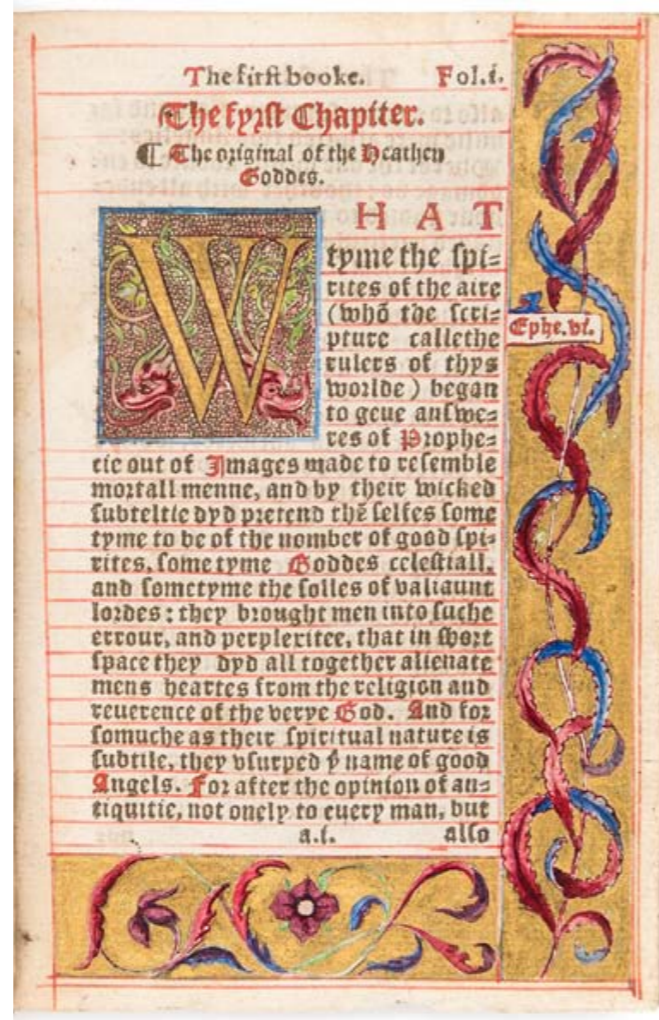 The first booke. Fol.i.
The fyrst Chapiter.
¶ The original of the Heathen
Goddes.
WHAT
tyme the spi=
rites of the aire
(whō the scri=
pture callethe
rulers of thys
worlde) began
to geue answe=
res of Prophe=
tie out of Images made to resemble
mortall menne, and by their wicked
subteltie dyd pretend thē selfes some
tyme to be of the nomber of good spi=
rites, some tyme Goddes celestiall,
and sometyme the solles of valiaunt
lordes: they brought men into suche
errour, and perplexitee, that in short
space they dyd all together alienate
mens heartes from the religion and
reuerence of the verye God. And for
somuche as their spiritual nature is
subtile, they vsurped þͤ name of good
Angels. For after the opinion of an=
tiquitie, not onely to euery man, but
a.i. also
Ephe.vi.